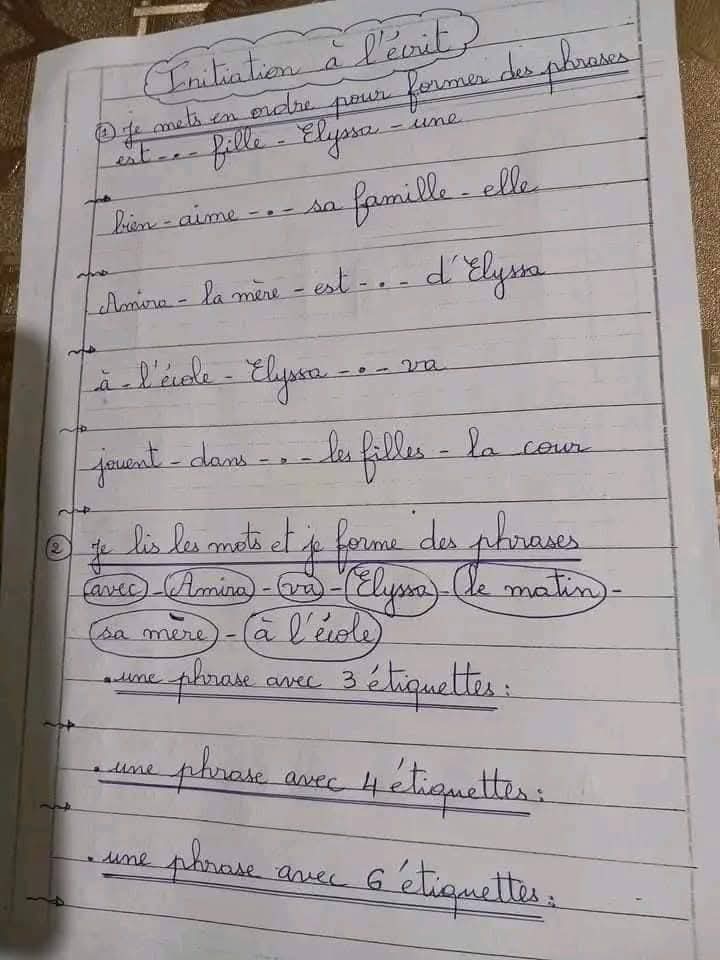 Initiation à l'écrit
① je mets en ordre pour former des phrases
est - . - fille - Elyssa - une
bien - aime - . - sa famille - elle
Amira - la mère - est - . - d'Elyssa
à - l'école - Elyssa - . - va
jouent - dans - . - les filles - la cour
② je lis les mots et je forme des phrases
avec - Amira - va - Elyssa - le matin -
sa mère - à l'école
. une phrase avec 3 étiquettes :
. une phrase avec 4 étiquettes :
. une phrase avec 6 étiquettes :